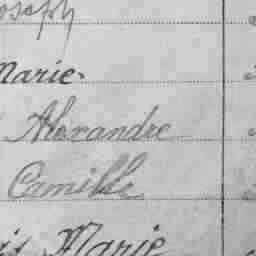 oseph
Marie
Alexandre
Camille
is Marie